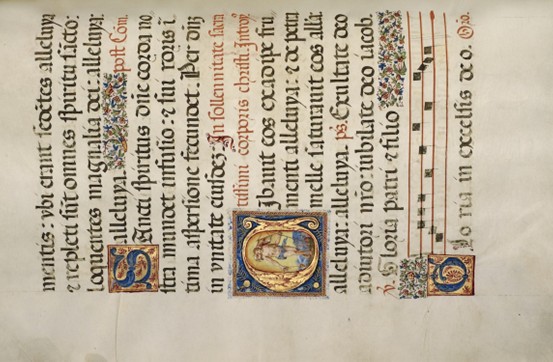 mentis: vbi erant sedētes alleluya
⁊ repleti sūt omnes spiritu sācto:
loquentes magnalia dei: alleluya:
alleluya. post Com.
Sancti spiritus dñe corda nō
stra mundet infusio: ⁊ sui roris ī
tima aspersione fecundet. Per dñ̄
in vnitate eiusdē: In sollennitate sacra
tissimi corporis christi. Introy.
Cibauit eos ex adipe fru
menti alleluya: ⁊ de petra
melle saturauit eos all'a:
alleluya. ps. Exultate deo
adiutori nr̄o: iubilate deo iacob.
℣. Gloria patri ⁊ filio
Glo ria in excelsis de o. Oro.